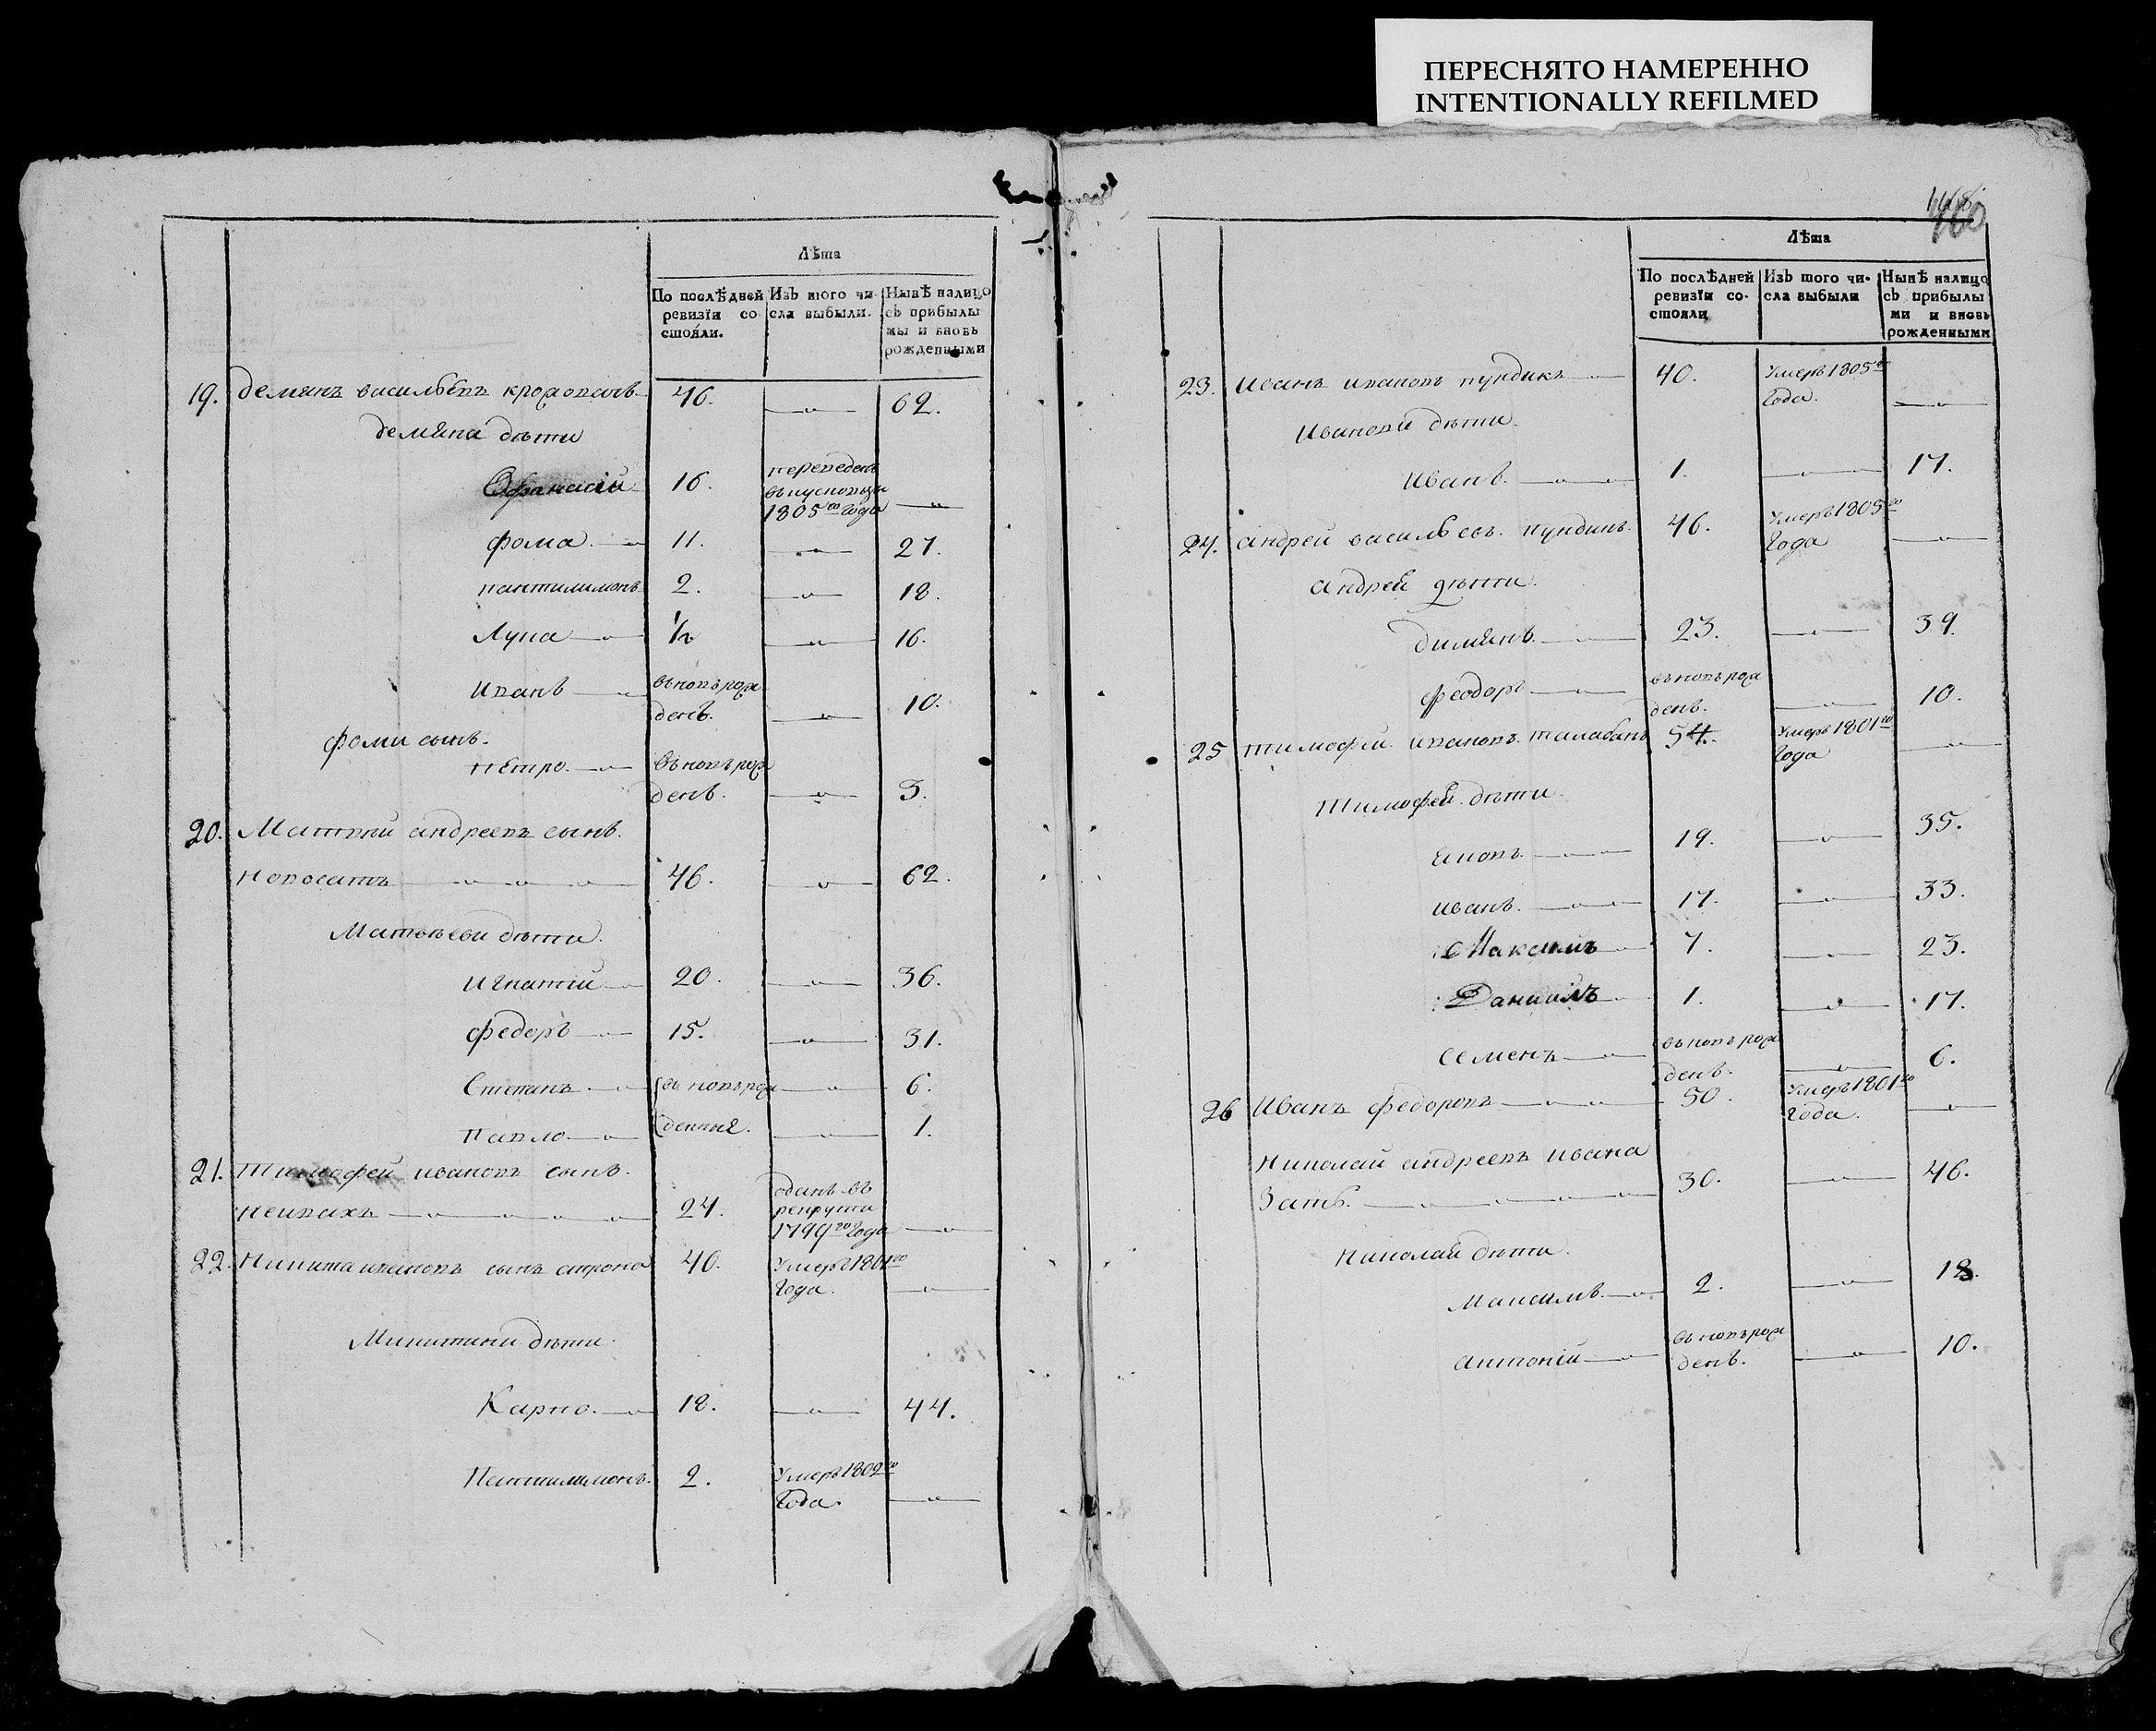 ПЕРЕСНЯТО НАМЕРЕННО
INTENTIONALLY REFILMED
Лѣта
По послѣдней ревизїи состояли.
Изъ того числа выбыли.
Нынѣ налицо съ прибылымы и вновь рожденными
19. демянъ васильевъ 46. 62.
демяна дѣти
Офанасий 16. переведенъ 1805го года
фома 11. 27.
пантилимонъ 2. 18.
Лука 1/2 16.
иванъ въновѣрожденъ. 10.
фоми сынъ.
петро. въновѣрожденъ. 3.
20. Матвѣй андреевъ сынъ.
46. 62.
Матвѣеви дѣти.
игнатий 20. 36.
федоръ 15. 31.
Степанъ въновѣрожденныя. 6.
Павло 1.
21. Тимофей ивановъ сынъ.
24. оданъ въ рекруты 1799го года
22. Никита ивановъ сынъ 40. Умеръ 1801го года.
Микитини дѣти.
Карпо. 18. 44.
Пантилимонъ. 2. Умеръ 1802го года.
160
Лѣта
По послѣдней ревизїи состояли
Изъ того числа выбыли
Нынѣ налицо съ прибылыми и вновь рожденными
23. Иванъ ивановъ пундикъ 40. Умеръ 1805го года.
Иванови дѣти.
Иванъ. 1. 17.
24. андрей васильевъ. пундикъ. 46. Умеръ 1805го года
андрей дѣти.
димянъ. 23. 39.
феодоръ въновѣрожденъ. 10.
25 тимофей ивановъ талабанъ 54. Умеръ 1801го года
Тимофей дѣти.
яковъ. 19. 35.
иванъ. 17. 33.
Максимъ 7. 23.
Даниилъ 1. 17.
семенъ въновѣрожденъ. 6.
26 Иванъ федоровъ 50. Умеръ 1801го года.
николай андреевъ ивана
зять. 30. 46.
николай дѣти.
максимъ. 2. 18.
антоний въновѣрожденъ. 10.